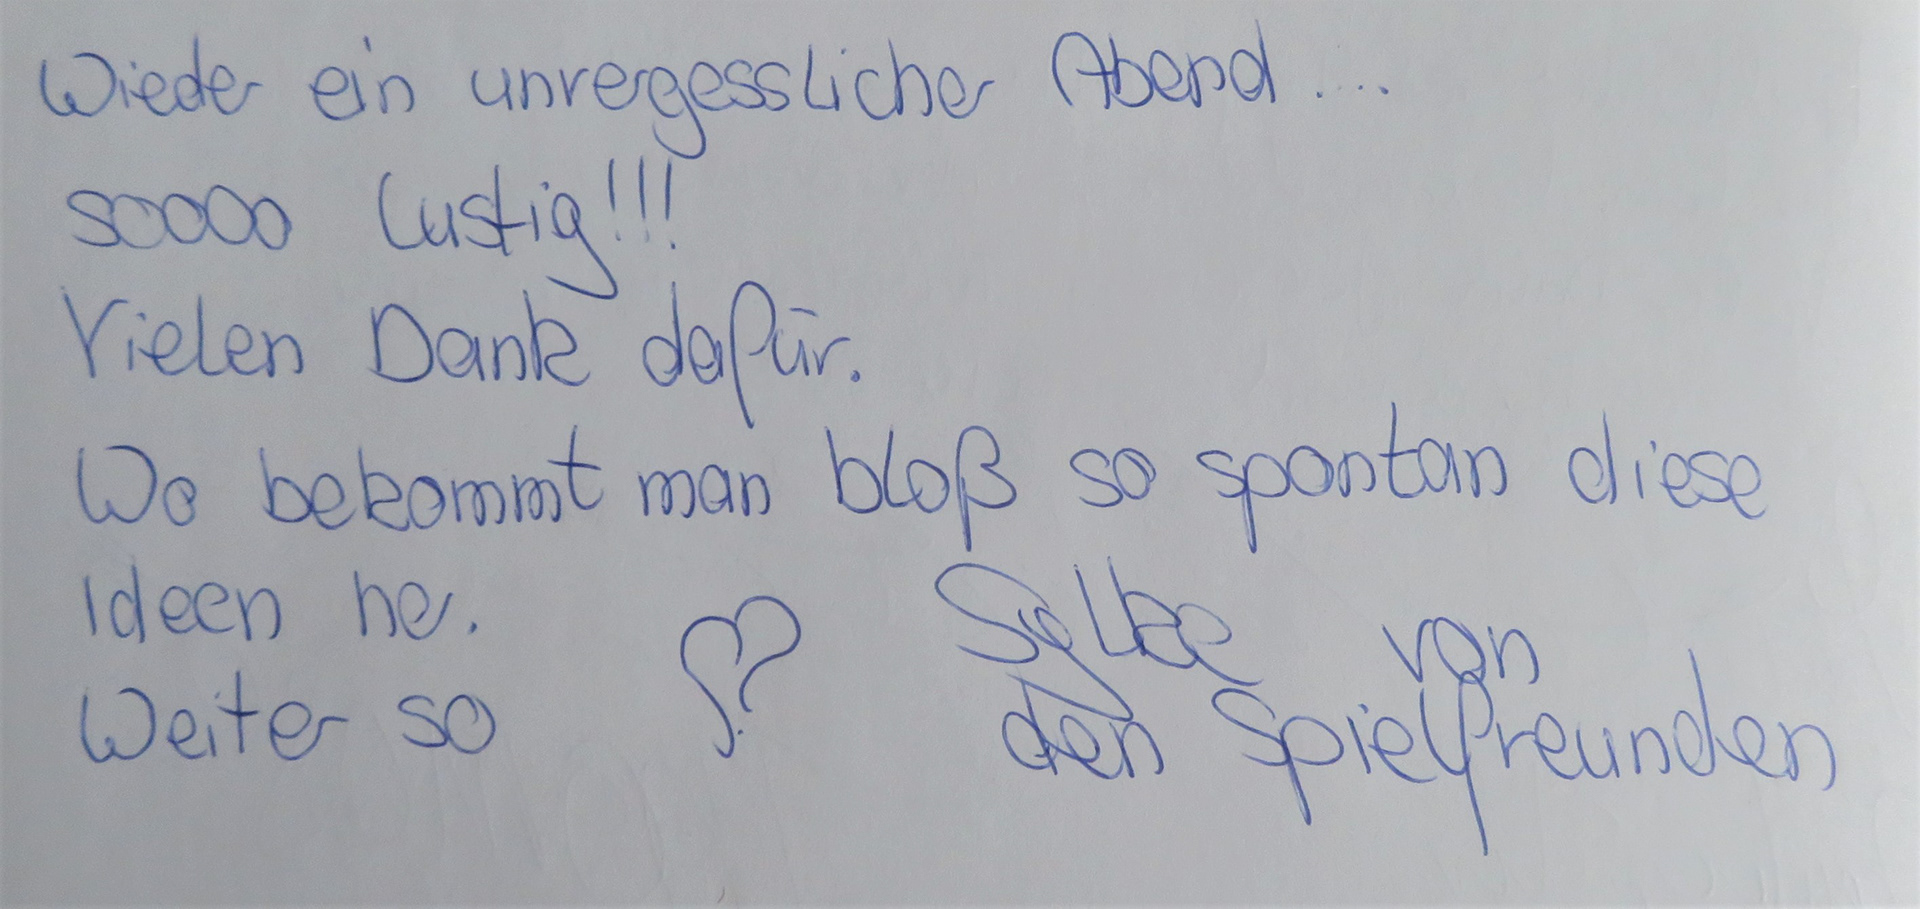 Wieder ein unvergesslicher Abend....
soooo lustig!!!
Vielen Dank dafür.
Wo bekommt man bloß so spontan diese
Ideen her.
Weiter so
von
den Spielfreunden